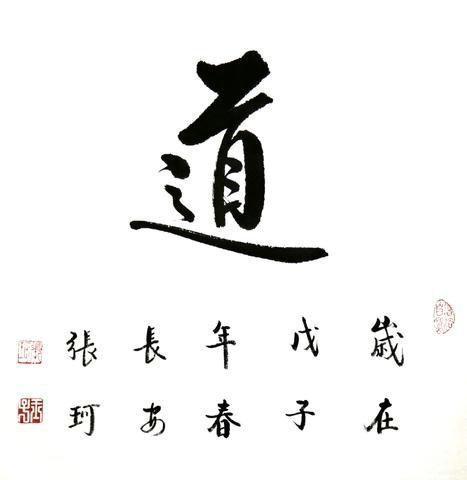 道
歲在
戊子
年春
長安
張珂